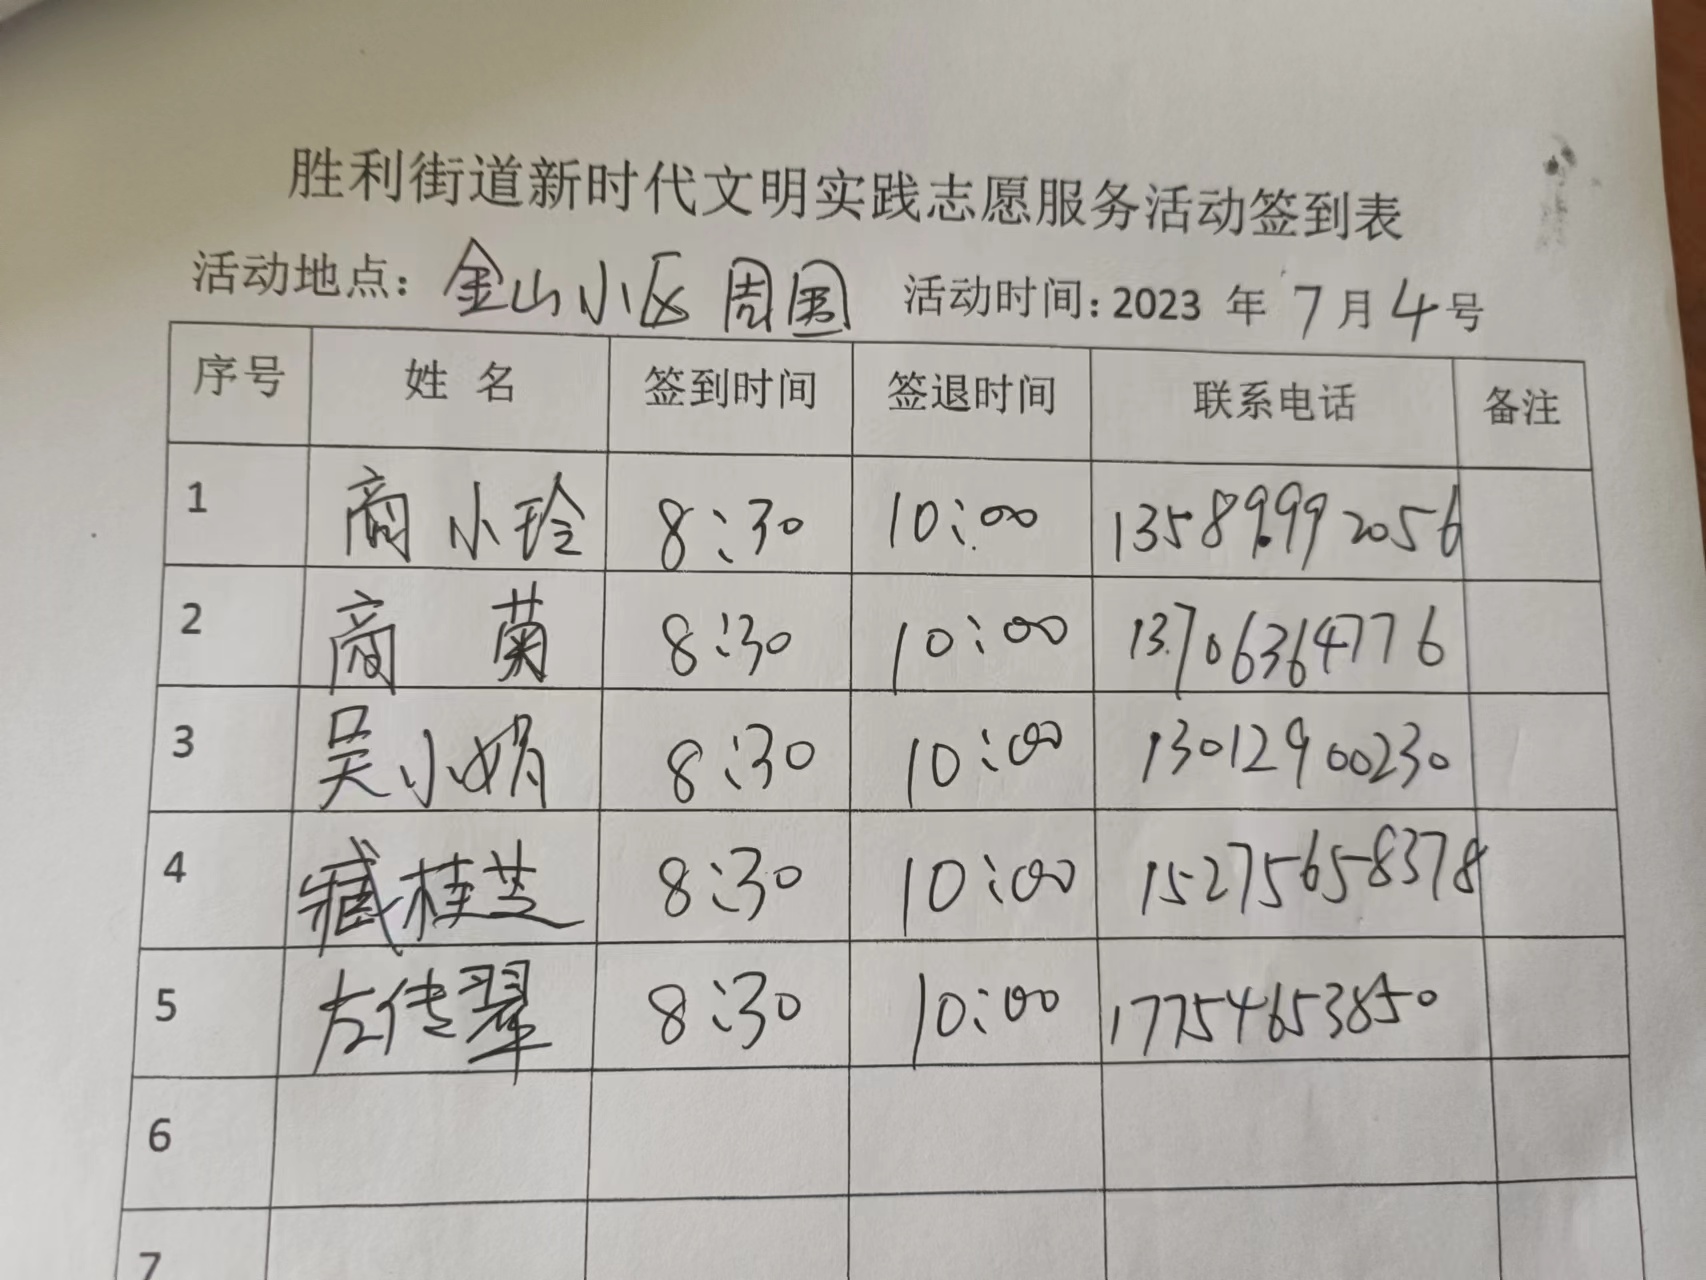 胜利街道新时代文明实践志愿服务活动签到表
活动地点：金山小区周围 活动时间：2023 年 7月4号
序号 姓 名 签到时间 签退时间 联系电话 备注
1 商小玲 8:30 10:00 13589992056
2 商 菊 8:30 10:00 13706364776
3 吴小娟 8:30 10:00 13012900230
4 臧桂芝 8:30 10:00 15275658378
5 左传翠 8:30 10:00 17754653850
6
7